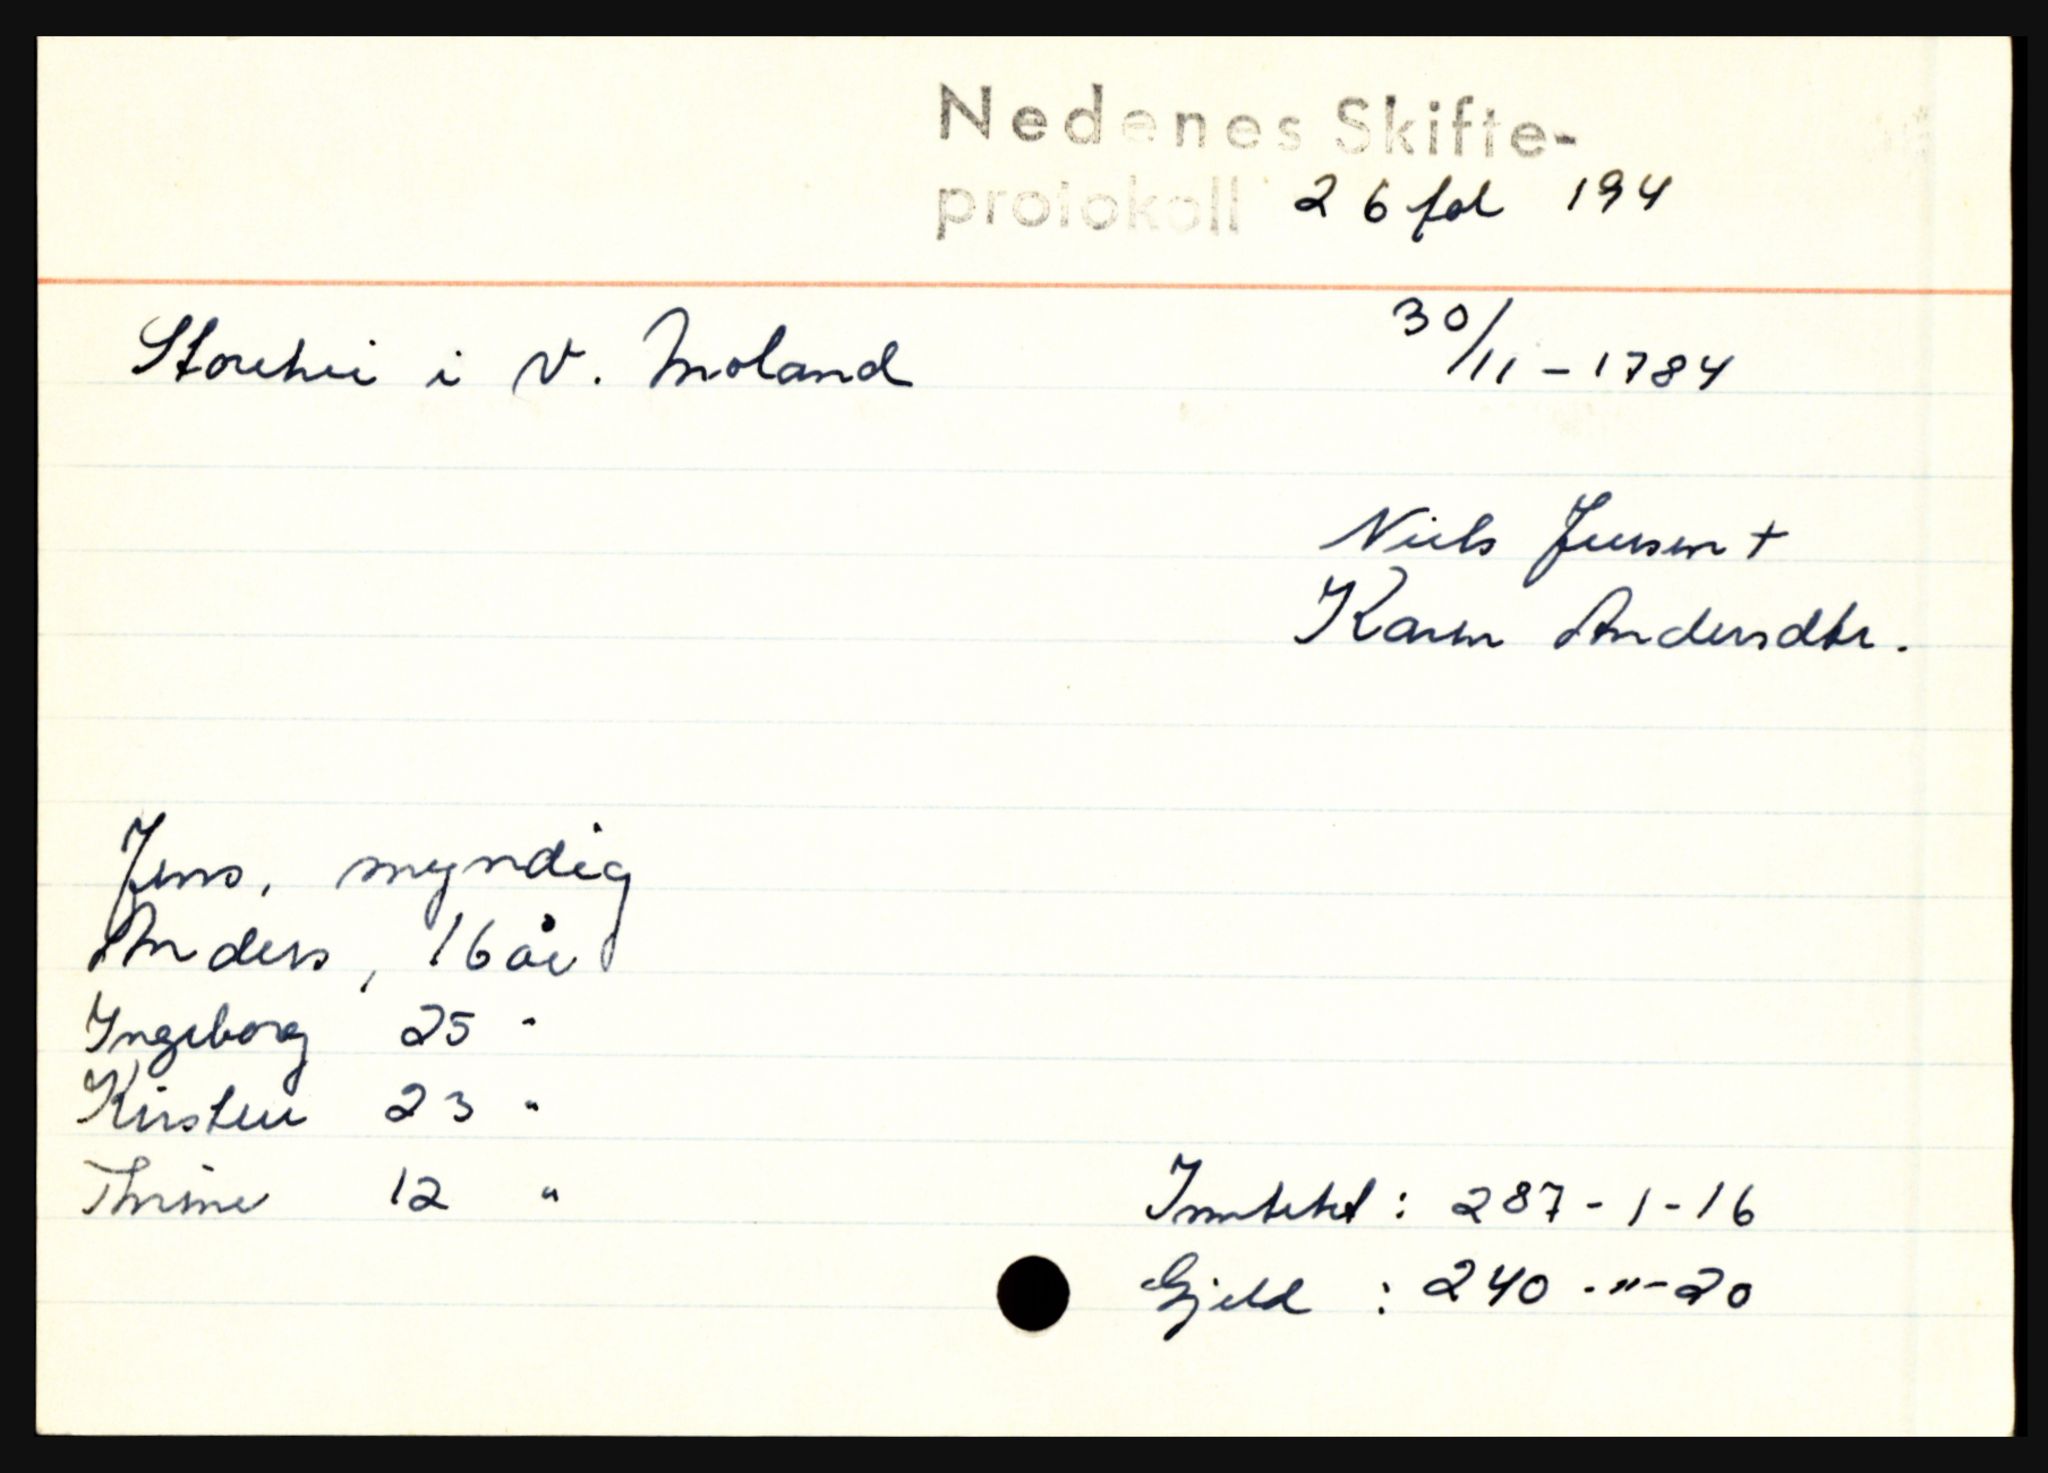 Nedenes Skifte-
protokoll 26 fol 194
Storehei i V. Moland
30/11-1784
Niels Jensen +
Karen Andersdtr.
Jens, myndig
Anders, 16 år
Ingeborg 25 "
Kirsten 23 "
Thrine 12 "
Inntekt: 287-1-16
Gjeld : 240-"-20